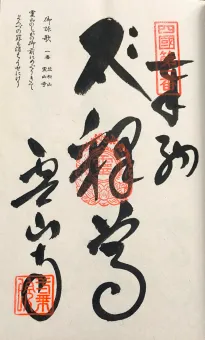 奉納
四國第一番
釋尊
霊山寺
御詠歌 一番 竺和山 霊山寺
霊山のしゃかの御前にめぐりきて
よろづの罪も消えうせにけり